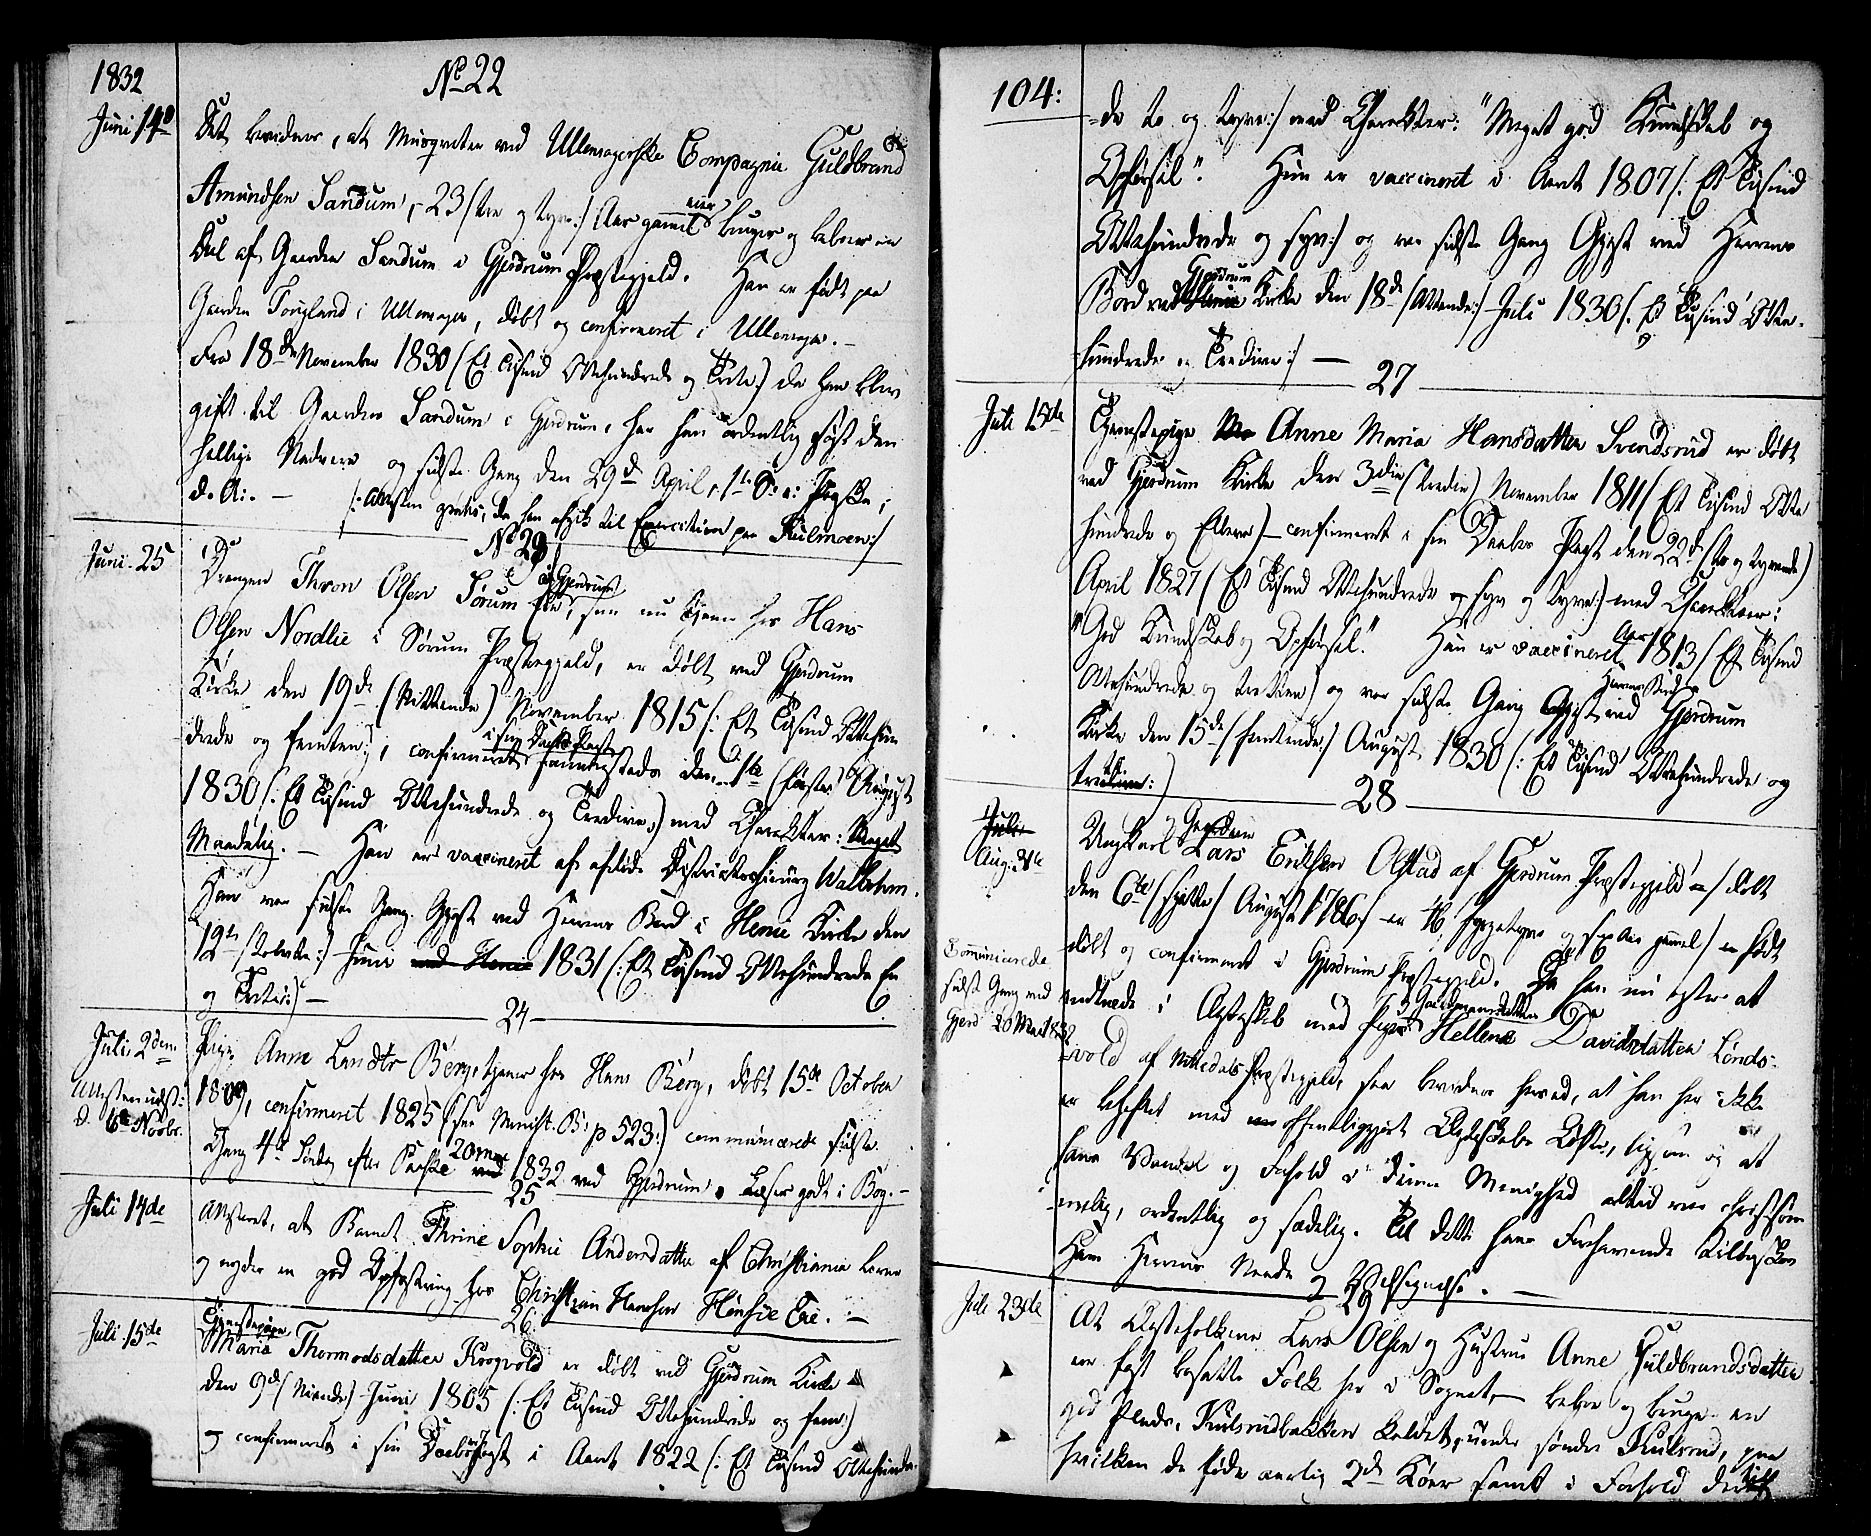 1832
No 22
Juni 14d
Det bevidnes, at Musqveteer ved Ullensagerske Compagnie Guldbrand
Amundsen Sandum, 23 /: tre og tyve :/ Aar gammel eier bruger og beboer en
Deel af Gaarden Sandum i Gjerdrum Præstegjeld. Han er født paa
Gaarden Fougland i Ullensager, døbt og confirmeret i Ullensager. –
Fra 18de November 1830 (Et Tusind Ottehundrede og Trete) da han blev
gift til Gaarden Sandum i Gjerdrum, har han ordentlig søgt den
hellige Nadvere og sidste Gang den 29d April, 1te S: e: Paaske,
d. A. – /: Attesten gratis, da han afgik til Exercition paa Kulmoen :/
No 23
Juni 25
Drengen Thron Olsen Sørum af Gjerdrum, som nu tjener hos Hans
Olsen Nordlie i Sørum Præstegjeld, er døbt ved Gjerdrum
Kirke den 19de (Nittende) November 1815 /: Et Tusind Ottehun
drede og femten :/, confirmeret sammesteds i sin Daabs Pagt den 1te (første) August
1830 /: Et Tusind Ottehundrede og Tredive :/ med Charakter: Meget
Maadelig. – Han er vaccineret af afdøde Districtschirurg Wallbohm.
Han var sidste Gang Gjest ved Herrens Bord i Heni Kirke den
12te /: tolvte :/ Juni ved Heni 1831 /: Et Tusind Ottehundrede En
og Trete :/ –
24
Juli 2den
Attesten udst:
d. 6te Novbr.
Pige Anne Larsdtr Berg, tjener hos Hans Berg, døbt 15de October
1809, confirmeret 1825 (see Minist. B: p 523:) communicerede sidste
Gang 4de Søndag efter Paaske 20 Mai 1832 ved Gjerdrum. Læser godt i Bog. –
25
Juli 14de
Attesteret, at Barnet Thrine Sophie Andersdatter af Christiania lever
og nyder en god Opfostring hos Christian Hansen Hønsie Eie. –
26
Juli 15de
Tjenestepige
Maria Thormodsdatter Krogvold er døbt ved Gjerdrum Kirke
den 9de (Niende) Juni 1805 /: Et Tusind Ottehundrede og fem :/
og confirmeret i sin Daabspagt i Aaret 1822 /: Et Tusind Ottehundre-
104:
-de to og tyve :/ med Charakter: "Meget god Kundskab og
Opførsel". Hun er vaccineret i Aaret 1807 /: Et Tusind
Ottehundrede og syv :/ og var sidste Gang Gjest ved Herrens
Bord ved Gjerdrum Kirke den 18de /: Attende :/ Juli 1830 /: Et Tusind Otte-
hundrede og Tredive :/ –
27
Juli 15de
Tjenestepige Anne Maria Hansdatter Svendsrud er døbt
ved Gjerdrum Kirke den 3die (tredie) November 1811 (Et Tusind Otte
hundrede og Elleve) – confirmeret i sin Daabs Pagt den 22de (to og tyvende)
April 1827 (Et Tusind Ottehundrede og syv og tyve :) med Charakter:
"God Kundskab og Opførsel." Hun er vaccineret Aar 1813 (Et Tusind
Ottehundrede og tretten) og var sidste Gang Gjest ved Herrens Bord Gjerdrum
Kirke den 15de (femtende :) August 1830 (: Et Tusind Ottehundrede og
tredive :)
28
Juli
Aug: 3te
Communicerede
sidste Gang ved
Gjerd: 20 Mai 1832
Ungkarl Lars Eriksen Olstad af Gjerdrum Præstegjeld /: døbt
den 6te (sjette) August 1786 / er 46 fyrgetyve og sex Aar gammel / er født
døbt og confirmeret i Gjerdrum Præstegjeld. Da han nu agter at
indtræde i Ægteskab med Pige Gaardmandsdatter Hellena Davidsdatter Londs-
-vold af Nittedals Præstegjeld, saa bevidnes herved, at han her ikke
er behæftet med offentliggjort Ægteskabs Løfte, ligesom og at
hans Vandel og Forhold i denne Menighed altid var christsøm
melig, ordentlig og sædelig. Til dette hans Forehavende tilønskes
ham Herrens Naade og Velsignelse. –
29
Juli 23de
At Ægtefolkene Lars Olsen og Hustru Anne Guldbrandsdatter
ere fast bosatte Folk her i Sognet, – beboe og bruge en
god Plads, Kulsrudbakken kaldet, under søndre Kulsrud, paa
hvilken de føde aarlig 2de Køer samt i Forhold dertil